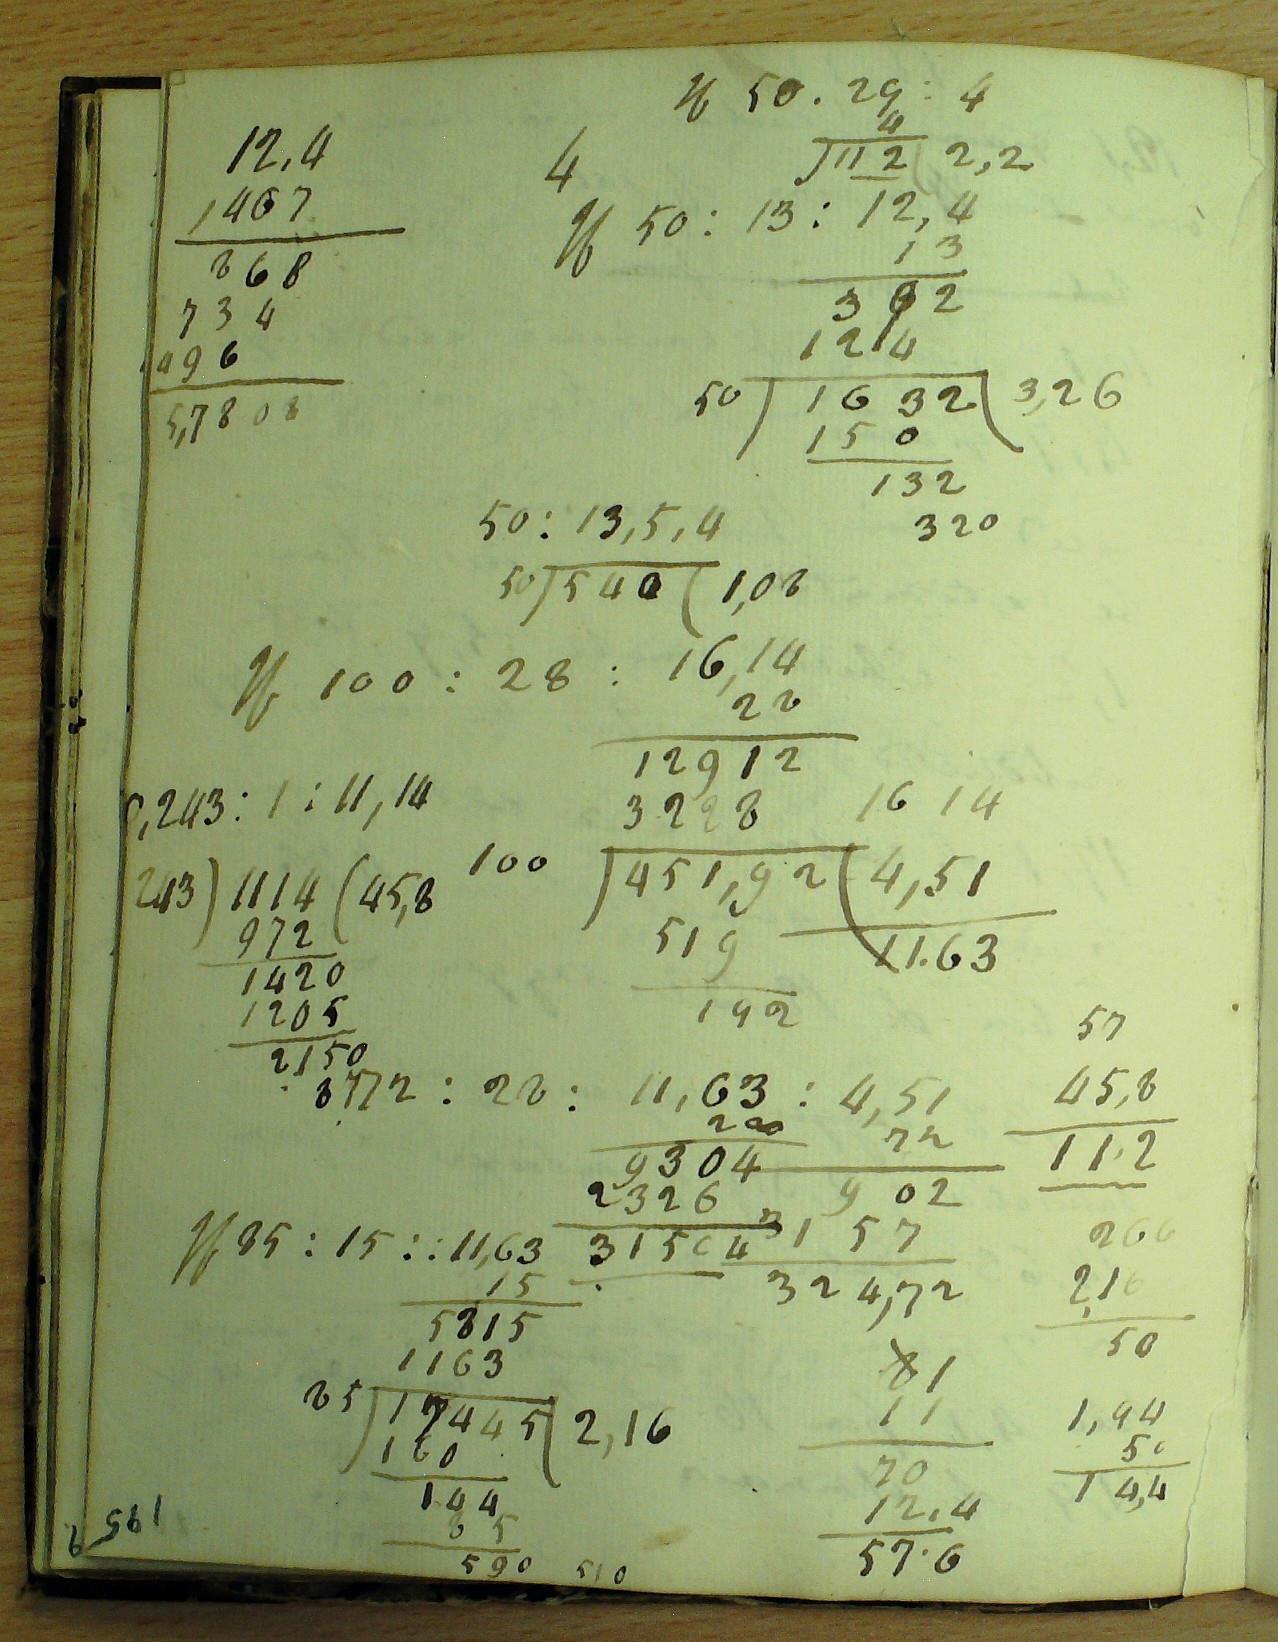 If 50 . 29 : 4
4
4
112 2,2
12,4
1467
868
734
496
5,7808
If 50 : 13 : 12,4
13
372
124
50) 1632 ( 3,26
150
132
320
50 : 13,5,4
50) 540 ( 1,08
If 100 : 28 : 16,14
28
12912
3228 16 14
100 ) 451,92 ( 4,51
519 11.63
192
,243 : 1 : 11,14
243) 1114 ( 45,8
972
1420
1205
2150
8772 : 28 : 11,63 : 4,51
28 72
9304 902
2326 3157
31564 324,72
57
45,8
11.2
266
2,16
50
If 85 : 15 :: 11,63
15
5815
1163
85) 17445 ( 2,16
160
144
85
590 510
81
11
70
12.4
57.6
1,94
50
14,4
195
561